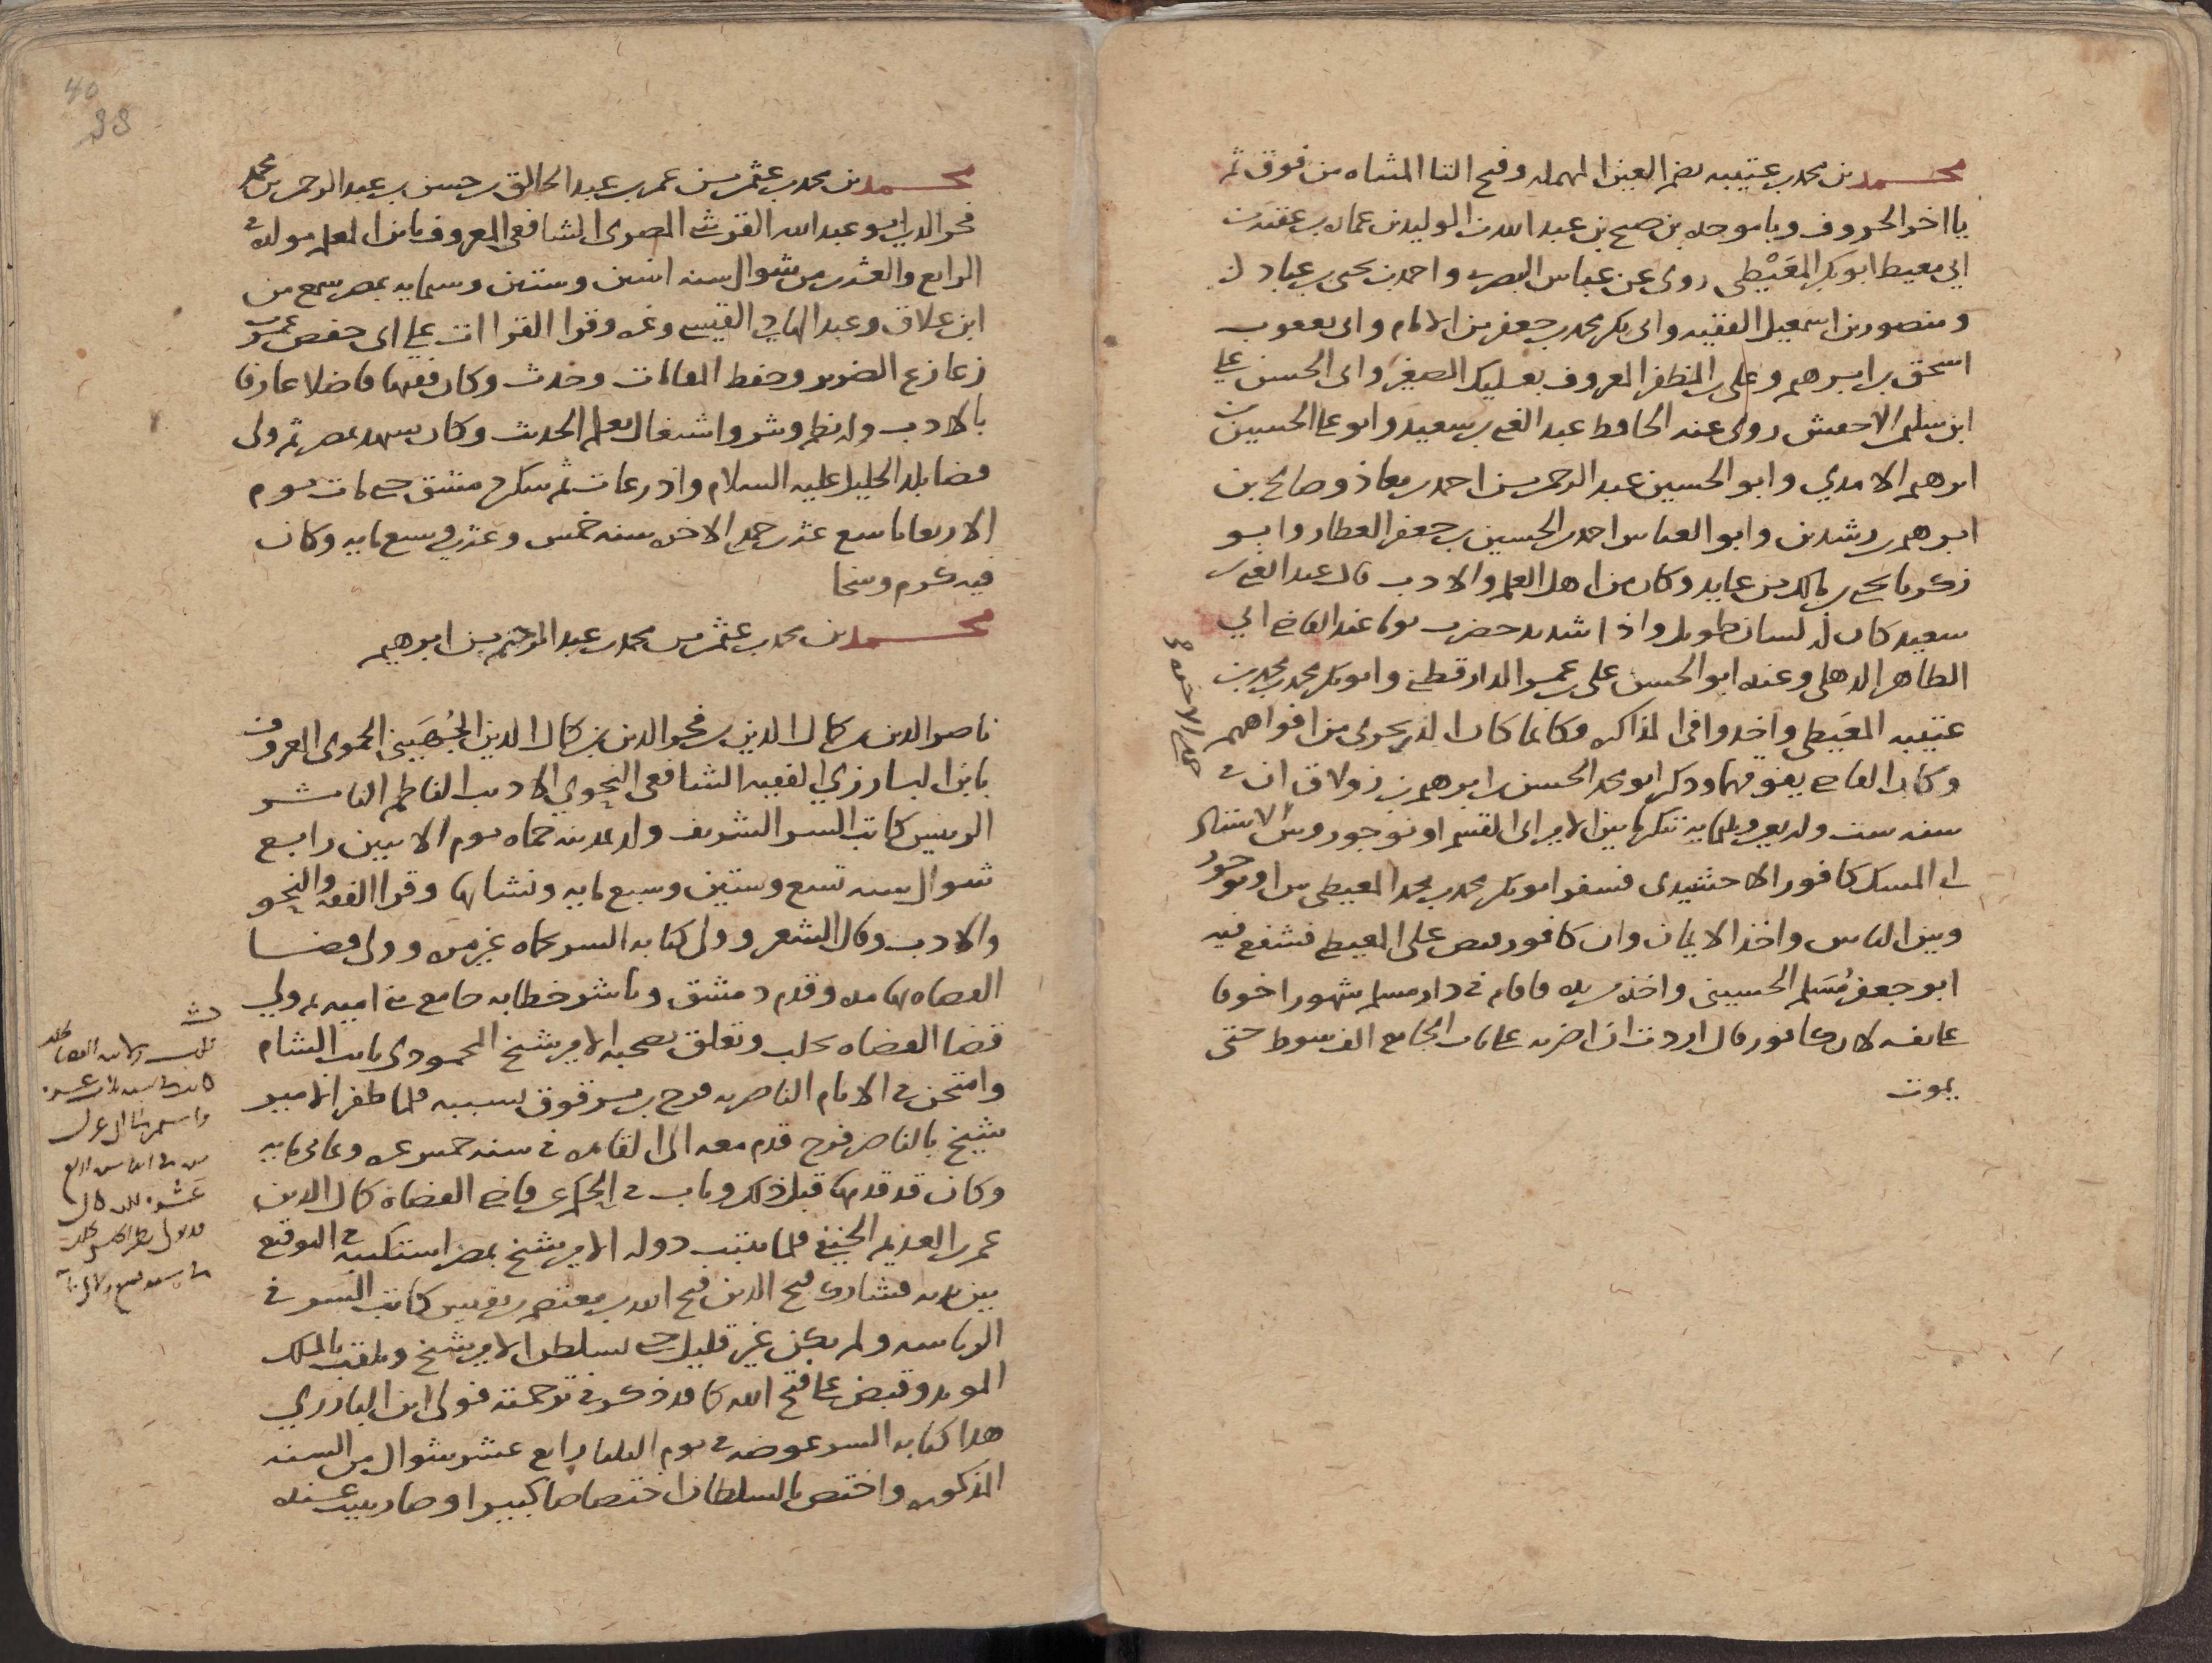 محمد بن محمد بن عتيبه بضم العين المهمله وفتح التا المثناه من فوق ثم
يا اخر الحروف وبا موحده بن صبح بن عبد الله بن الوليد بن عماره بن عقبه بن
ابي معيط ابو بكر المعَيْطى روى عن عباس البصرى واحمد بن يحيى بن عباد
ومنصور بن اسمعيل الفقيه وابى بكر محمد بن جعفر بن الامام وابى يعقوب
اسحق بن ابرهيم وعلى بن المظفر المعروف بعليك الصغير وابى الحسن على
ابن سليمن الاخفش روى عنه الحافظ عبد الغنى بن سعيد وابو على الحسين بن
ابرهيم الامدي وابو الحسين عبد الرحمن بن احمد بن معاذ وصالح بن
ابرهيم بن رشدين وابو العباس احمد بن الحسين بن جعفر العطار وابو
زكريا يحيى بن مالك بن عايد وكان من اهل العلم والادب قال عبد الغنى بن
سعيد كان له لسان طويل واذا شديد حضرت يوما عند القاضى ابي
الطاهر الذهلى وعنده ابو الحسن على بن عمر الدارقطنى وابو بكر محمد بن محمد بن
عتيبه المعَيطى واخذوا فى المذاكره فكانما كان الدر يجرى من افواههم
وكان القاضى يفوقهما وذكر ابو محمد الحسن بن ابرهيم بن زولاق ان فى
سنه ست واربعين وثلثمايه تنكر ما بين الامير ابى القسم اونوجور وبين الاستاذ
ابى المسك كافور الاخشيدى فسفر ابو بكر محمد بن محمد المعيطى بين اونوجور
وبين الناس واخذ الايمان وان كافور قبض على المعيطى فشفع فيه
ابو جعفر مُسَلم الحسينى واخذه بيده فاقام فى دار مسلم شهورا خوفا
عليه لان كافور قال اردت ان اضربه على باب الجامع الف سوط حتى
يموت
محمد بن محمد بن عثمن بن عمر بن عبد الخالق بن حسن بن عبد الرحمن بن محمد
فخر الدين ابو عبد الله القرشى المصرى الشافعى المعروف بابن المعلم مولده فى
الرابع والعشرين من شوال سنه اثنين وستين وستمايه بمصر سمع من
ابن علاق وعبد الهادي القيسى وغيره وقرا القراات على ابى حفص عمر بن
زعازع الضرير وحفظ المقامات وحدث وكان فقيها فاضلا عارفا
بالادب وله نظم ونثر واشتغال بعلم الحديث وكان يشهد بمصر ثم ولى
قضا بلد الخليل عليه السلام واذرعات ثم سكن دمشق حتى مات يوم
الاربعا تاسع عشر جمدى الاخره سنه خمس وعشرين وسبع مايه وكان
فيه كرم وسخا
محمد بن محمد بن عثمن بن محمد بن عبد الرحيم بن ابرهيم
ناصر الدين بن كمال الدين بن فخر الدين بن كمال الدين الجُهَيني الحموى المعروف
بابن البارزي الفقيه الشافعى النحوي الاديب الناظم الناثر
الرييس كاتب السر الشريف ولد بمدينه حماه يوم الاثنين رابع
شوال سنه تسع وستين وسبع مايه ونشا بها وقرا الفقه والنحو
والادب وقال الشعر وولى كتابه السر بحماه غير مره وولى قضا
القضاه بها مده وقدم دمشق وباشر خطابه جامع بنى اميه ثم ولي
قضا القضاه بحلب وتعلق بصحبه الامير شيخ المحمودي نايب الشام
وامتحن فى الايام الناصريه فرج بن برقوق بسببه فلما ظفر الامير
شيخ بالناصر فرج قدم معه الى القاهره فى سنه خمس عشره وثمانى مايه
وكان قد قدمها قبل ذلك وناب فى الحكم عن قاضى القضاه كمال الدين
عمر بن العديم الحنفى فلما ثبتت دوله الامير شيخ بمصر استكتبه فى التوقيع
بين يديه فشارك فتح الدين فتح الله بن معتصم بن نفيس كاتب السر فى
الرياسه ولم يكن غير قليل حتى تسلطن الامير شيخ وتلقب بالملك
المويد وقبض على فتح الله كما قد ذكر فى ترجمته فولى ابن البارزي
هدا كتابه السر عوضه فى يوم الثلثا رابع عشر شوال من السنه
المذكوره واختص بالسلطان اختصاصا كبيرا وصار يبيت عنده